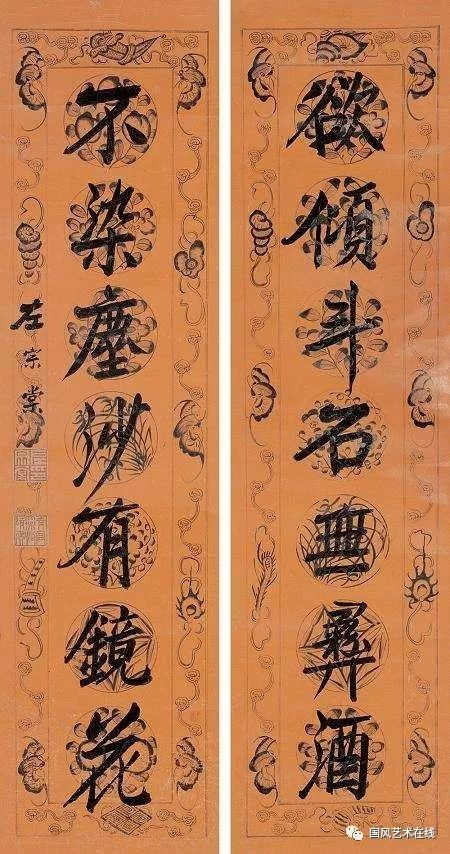 欲傾斗石無彝酒
不染塵沙有鏡花
左宗棠
国风艺术在线